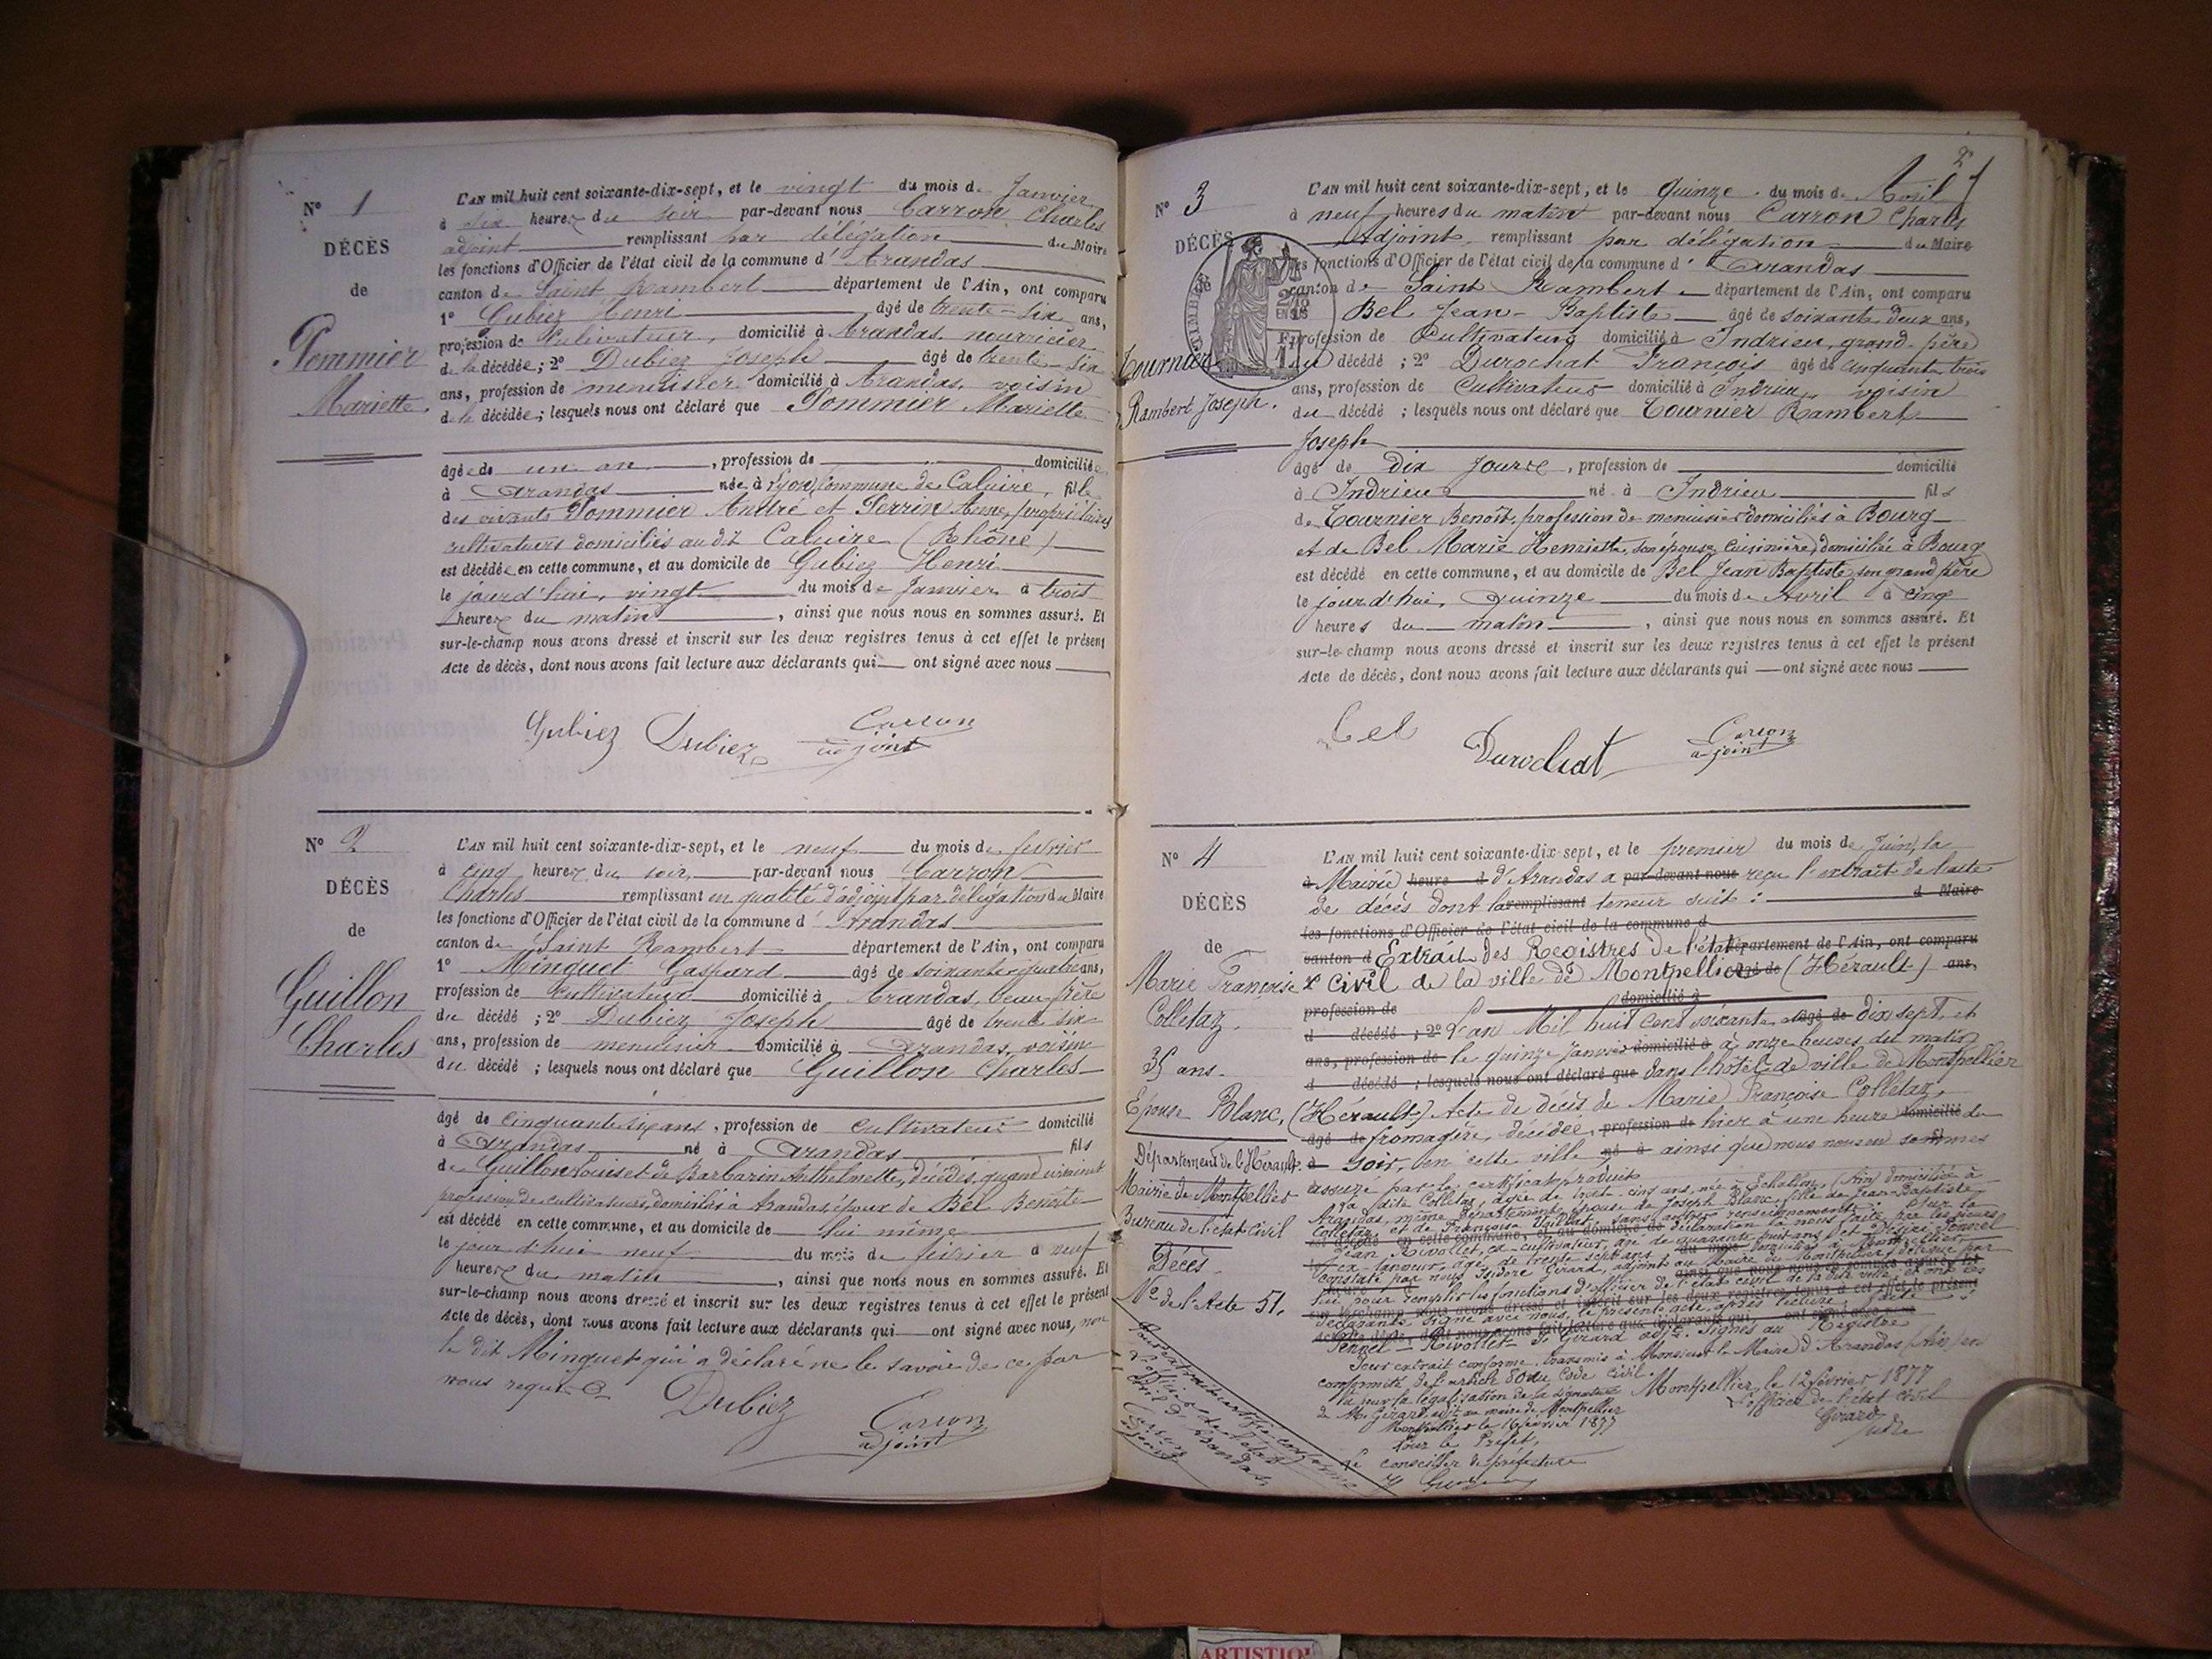 N° 1
DÉCÈS
de
Pommier
Mariette.
L'AN mil huit cent soixante-dix-sept, et le vingt du mois de Janvier
à six heures du soir par-devant nous Carron Charles
adjoint remplissant par délégation du Maire
les fonctions d'Officier de l'état civil de la commune d' Arandas
canton de Saint Rambert département de l'Ain, ont comparu
1° Gubiez Henri âgé de trente-six ans,
profession de Cultivateur, domicilié à Arandas, nourricier
de la décédée; 2° Dubiez Joseph âgé de trente-six
ans, profession de menuisier domicilié à Arandas, voisin
de la décédée; lesquels nous ont déclaré que Pommier Mariette
âgée de un an, profession de domiciliée
à Arandas née à Lyon, Commune de Caluire, fille
des vivants Pommier André et Perrin Anne, propriétaires
cultivateurs domiciliés au dit Caluire (Rhône)
est décédée en cette commune, et au domicile de Gubiez Henri
le jourd'hui, vingt du mois de Janvier à trois
heures du matin, ainsi que nous nous en sommes assuré. Et
sur-le-champ nous avons dressé et inscrit sur les deux registres tenus à cet effet le présent
Acte de décès, dont nous avons fait lecture aux déclarants qui ont signé avec nous
Gubiez Dubiez Carron
adjoint
N° 2
DÉCÈS
de
Guillon
Charles
L'AN mil huit cent soixante-dix-sept, et le neuf du mois de fevrier
à cinq heures du soir par-devant nous Carron
Charles remplissant en qualité d'adjoint par délégation du Maire
les fonctions d'Officier de l'état civil de la commune d' Arandas
canton de Saint Rambert département de l'Ain, ont comparu
1° Minguet Gaspard âgé de soixante-quatre ans,
profession de Cultivateur domicilié à Arandas, beau-frère
du décédé; 2° Dubiez Joseph âgé de trente six
ans, profession de menuisier domicilié à Arandas, voisin
du décédé; lesquels nous ont déclaré que Guillon Charles
âgé de cinquante six ans, profession de Cultivateur domicilié
à Arandas né à Arandas fils
de Guillon Louis et de Barbarin Anthelmette, décédés, quand vivaient
profession de cultivateurs, domiciliés à Arandas, époux de Bel Benoite
est décédé en cette commune, et au domicile de lui même
le jour d'hui neuf du mois de février à neuf
heures du matin, ainsi que nous nous en sommes assuré. Et
sur-le-champ nous avons dressé et inscrit sur les deux registres tenus à cet effet le présent
Acte de décès, dont nous avons fait lecture aux déclarants qui ont signé avec nous, non
le dit Minguet qui a déclaré ne le savoir de ce par
nous requis
Dubiez Carron
adjoint
2
N° 3
DÉCÈS
de
Tournier
Rambert Joseph.
L'AN mil huit cent soixante-dix-sept, et le Quinze du mois de Avril
à neuf heures du matin par-devant nous Carron Charles
Adjoint remplissant par délégation du Maire
les fonctions d'Officier de l'état civil de la commune d' Arandas
canton de Saint Rambert département de l'Ain, ont comparu
Bel Jean-Baptiste âgé de soixante deux ans,
profession de Cultivateur domicilié à Indrieu, grand-père
du décédé; 2° Durochat François âgé de cinquante trois
ans, profession de Cultivateur domicilié à Indrieu, voisin
du décédé; lesquels nous ont déclaré que Tournier Rambert
Joseph
âgé de dix jours, profession de domicilié
à Indrieu né à Indrieu fils
de Tournier Benoît, profession de menuisier domiciliés à Bourg
et de Bel Marie Henriette, son épouse, cuisinière, domiciliée à Bourg
est décédé en cette commune, et au domicile de Bel Jean Baptiste son grand père
le jourd'hui, Quinze du mois de Avril à cinq
heures du matin, ainsi que nous nous en sommes assuré. Et
sur-le-champ nous avons dressé et inscrit sur les deux registres tenus à cet effet le présent
Acte de décès, dont nous avons fait lecture aux déclarants qui ont signé avec nous
Bel Durochat Carron
adjoint
N° 4
DÉCÈS
de
Marie Françoise
Colletaz.
35 ans.
Epouse Blanc,
Département de l'Hérault.
Mairie de Montpellier
Bureau de l'état civil
Décès.
N° de l'Acte 51.
L'AN mil huit cent soixante-dix-sept, et le premier du mois de Juin, la
Mairie d'Arandas a reçu l'extrait de l'acte
de décès dont la teneur suit :
Extrait des Registres de l'état
civil de la ville de Montpellier (Hérault)
L'an Mil huit cent soixante dix sept, et
le quinze Janvier à onze heures du matin
dans l'hôtel de ville de Montpellier
(Hérault) Acte de décès de Marie Françoise Colletaz,
fromagère, décédée, hier à une heure du
soir, en cette ville ainsi que nous nous en sommes
assuré par le certificat produit
La dite Colletaz, âgée de trente cinq ans, née à Echallon, (Ain) domiciliée à
Arandas, même Département, épouse de Joseph Blanc, fille de Jean-Baptiste
Colletaz et de Françoise sans autres renseignements. Sur la
déclaration à nous faite par les sieurs
Jean Rivollet, ex-cultivateur, âgé de quarante huit ans, et Désiré Pennel
ex-tanneur, âgé de trente sept ans, domiciliés à Montpellier,
Constaté par nous Isidore Girard, adjoint au Maire de Montpellier, délégué par
lui pour remplir les fonctions d'officier de l'état civil de la dite ville et ont les
déclarants signé avec nous, le présent acte, après lecture faite
Pennel - Rivollet - I. Girard adjt. Signés au Registre
Pour extrait conforme transmis à Monsieur le Maire d'Arandas (Ain) en
conformité de l'article 80 du Code Civil.
Vu pour la légalisation de la signature
de Mr. Girard, adjt au maire de Montpellier
Montpellier le 16 février 1877
Montpellier, le 12 février 1877
L'officier de l'état civil
Girard
Pour le Préfet,
Le conseiller de préfecture